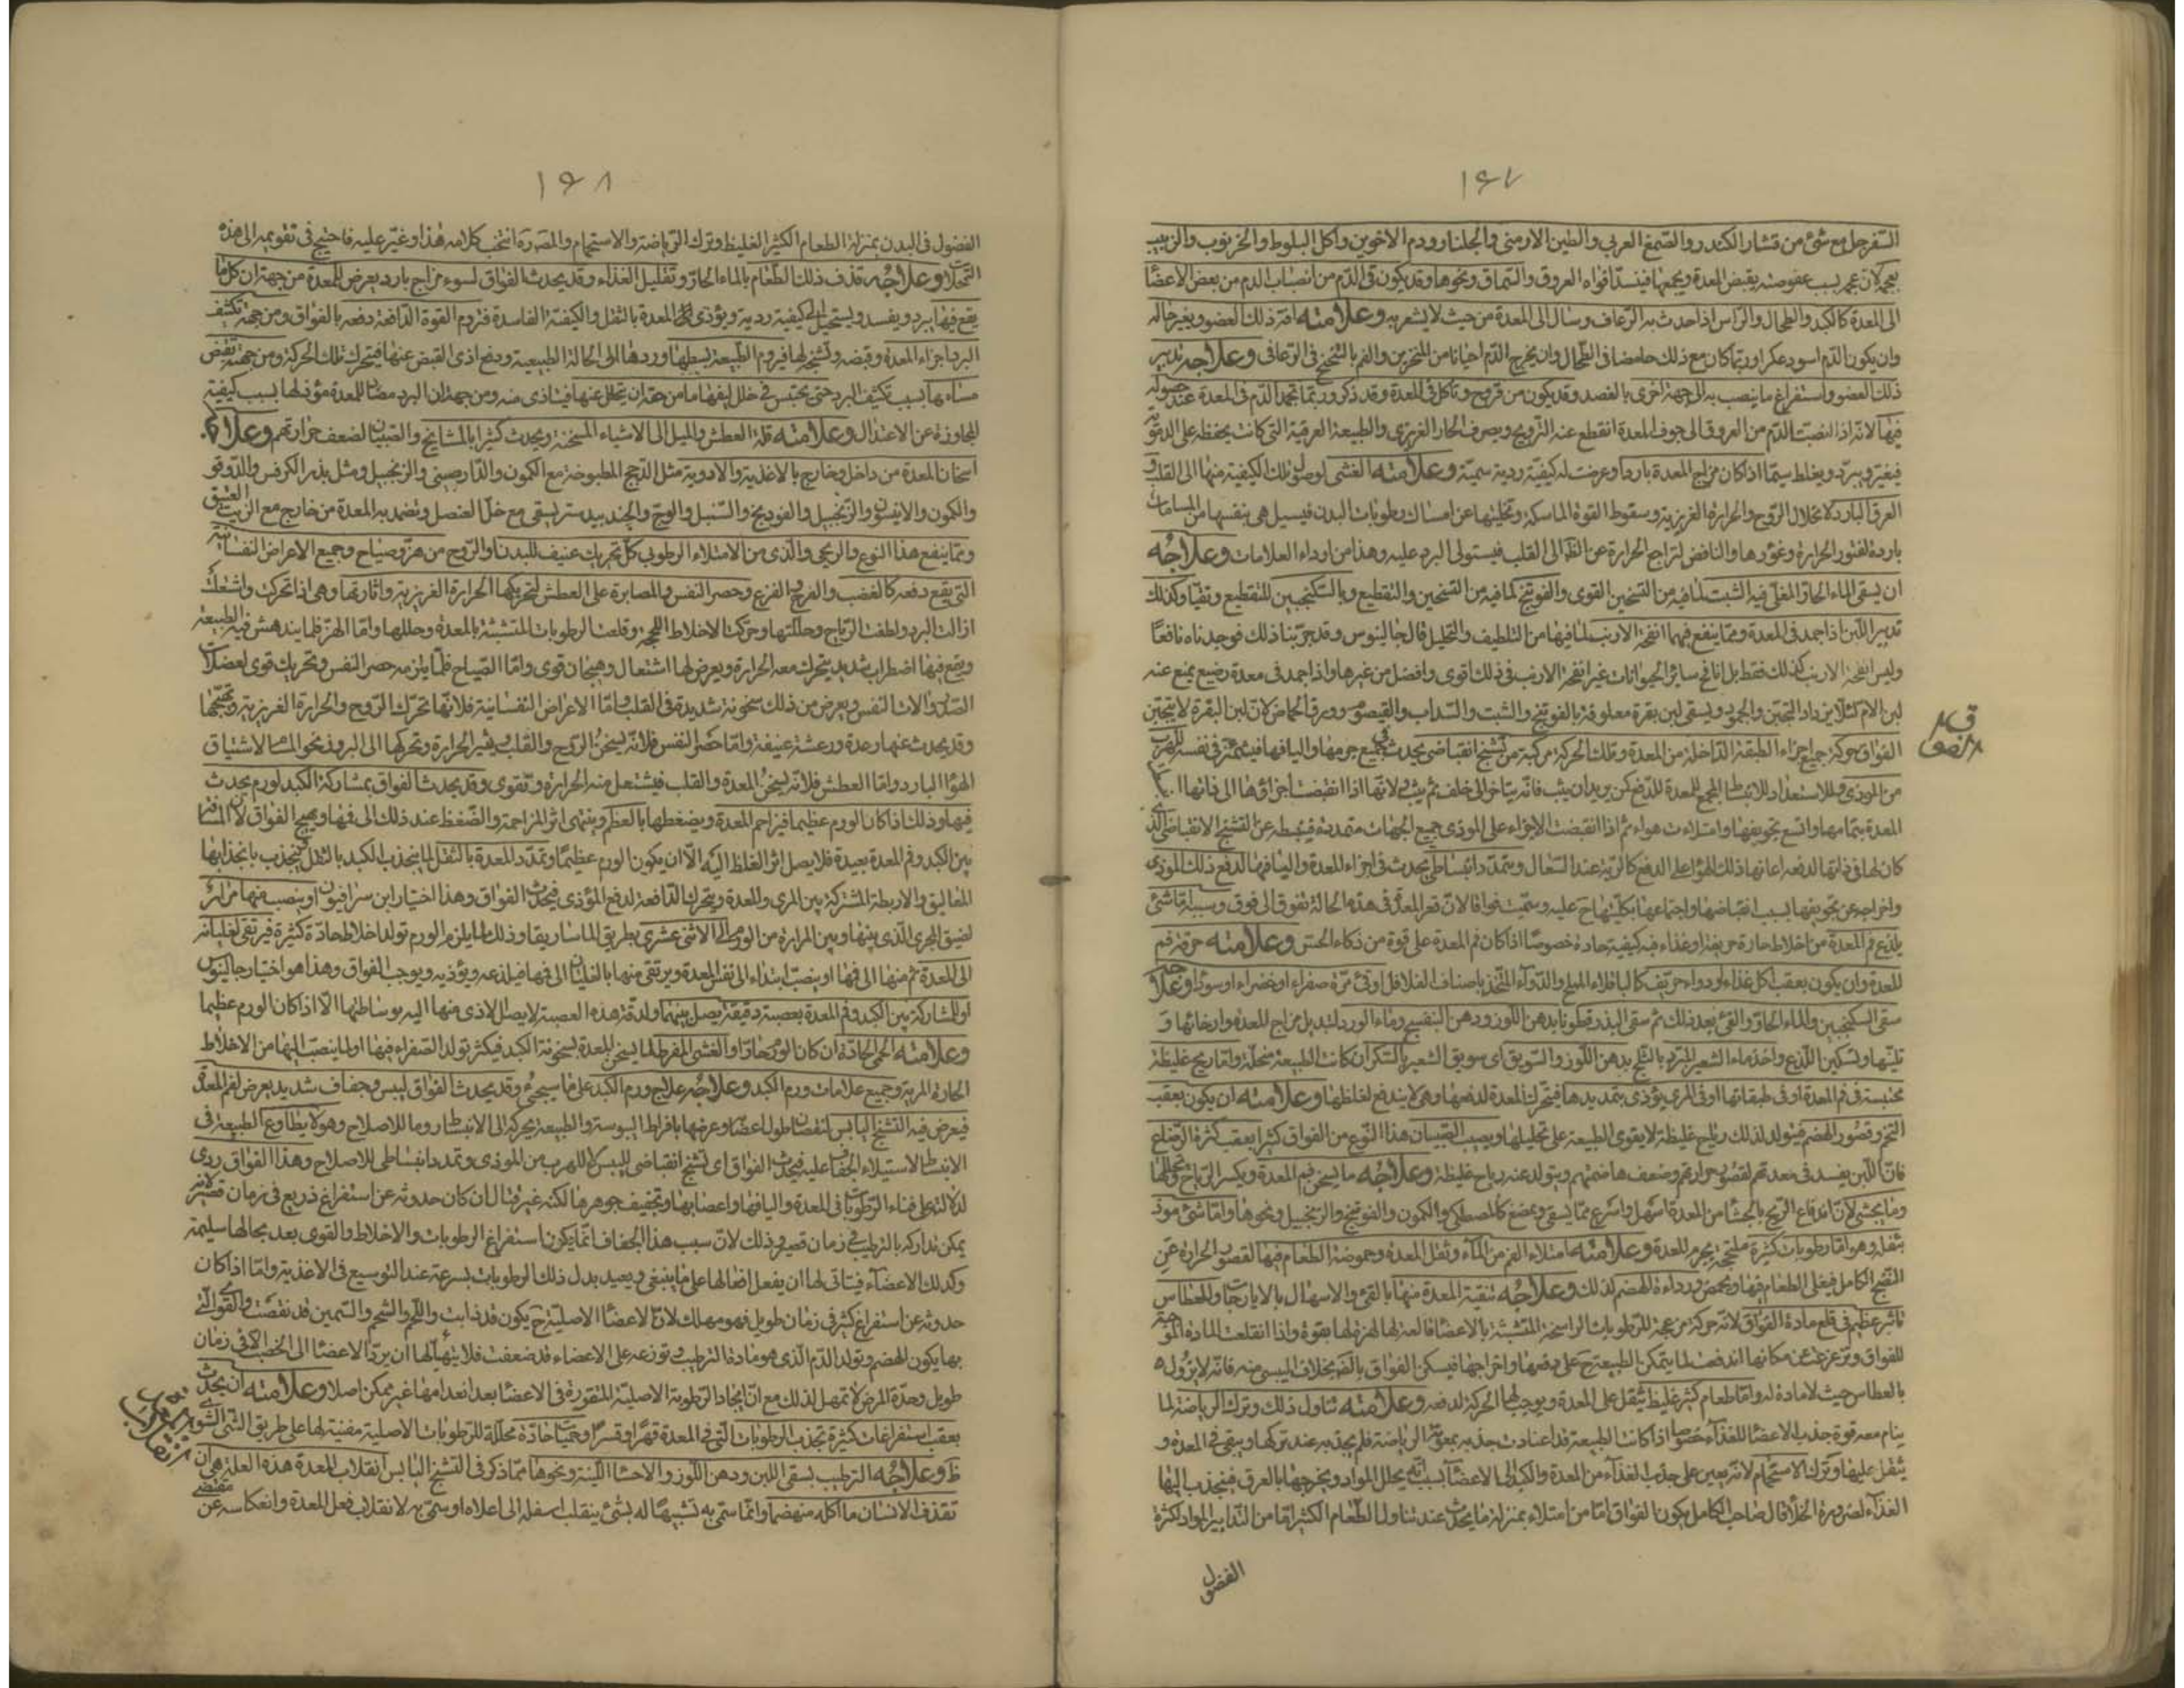 ١٦٧
السفرجل مع شئ من قشار الكندر والصمغ العربي والطين الارمني والجلنار ودم الاخوين واكل البلوط والخرنوب والزبيب
بعجمه لان عجمه بسبب عفوصته يقبض المعدة ويجمعها فينسد افواه العروق والسماق ونحوها وقد يكون قئ الدم من انصباب الدم من بعض الاعضا
الى المعدة كالكبد والطحال والراس اذا حدث به الرعاف وسال الى المعدة من حيث لا يشعر به وعلامته افة ذلك العضو وتغير حاله
وان يكون الدم اسود عكرا وربما كان مع ذلك حامضا في الطحال وان يخرج الدم احيانا من المنخرين والفم بالتنخع في الرعافى وعلاجه تدبير
ذلك العضو واستفراغ ما ينصب به الى جهة اخرى بالفصد وقد يكون من قروح وتاكل في المعدة وقد ذكر وربما تجمد الدم في المعدة عند حصوله
فيها لانه اذا انصب الدم من العروق الى جوف المعدة انقطع عنه الترويح وتصرف الحار الغريزي والطبيعة العرقية التي كانت يحفظه على الدموية
فيتغير ويبرد ويغلظ سيما اذا كان مزاج المعدة باردا وعرضت له كيفية ردية سمية وعلامته الغشى لوصول تلك الكيفية منها الى القلب و
العرق البارد لانحلال الروح والحرارة الغريزية وسقوط القوة الماسكة وتخليها عن امساك رطوبات البدن فيسيل هي بنفسها من المسامات
باردة لفتور الحرارة وغؤرها والنافض لتراجع الحرارة عن الظاهر الى القلب فيستولى البرد عليه وهذا من اردأ العلامات وعلاجه
ان يسقى الماء الحار المغلى فيه الشبت لما فيه من التسخين القوى والفوتنج لما فيه من التسخين والتقطيع وبالسكنجبين للتقطيع وتقيأ وكذلك
تدبير اللبن اذا جمد في المعدة ومما ينفع فيهما انفحة الارنب لما فيها من التلطيف والتحليل قال جالينوس وقد جربنا ذلك فوجدناه نافعا
وليس انفحة الارنب كذلك فقط بل انافح سائر الحيوانات غير انفحة الارنب في ذلك اقوى وافضل من غيرها واذا جمد في معدة رضيع يمنع عنه
لبن الام كيلا يزداد التجبن والجمود ويسقى لبن بقرة معلوفة بالفوتنج والشبت والسداب والقيصوم وورق الحماض لان لبن البقرة لا يتجبن
الفواق حركة جميع اجزاء الطبقة الداخلة من المعدة وتلك الحركة مركبة من تشنج انقباضى يحدث في جميع جرمها واليافها فيشمئز في نفسه للهرب
من الموذى وللاستعداد للانبساط المحمع للمعدة للدفع كمن يريد ان يثب فانه يتاخر الى خلف ثم يثب لانها اذا انقبضت اجزاؤها الى ذاتها
المعدة بتمامها واتسع تجويفها وامتلاءت هواء ثم اذا انقبضت الاجزاء على الموذى جميع الجهات متمددة منبسطة عن التشنج الانقباضى الذى
كان لها في ذاتها لدفعه اعانها ذلك الهواء على الدفع كالرية عند السعال وتمدد انبساطى يحدث في اجزاء المعدة واليافها لدفع ذلك الموذى
واخراجه عن تجويفها بسبب انقباضها واجتماعها بكليتها ح عليه وسميت فواقا لان قعر المعدة في هذه الحالة تفوق الى فوق وسببه اما شئ
يلذع فم المعدة من اخلاط حارة حريفة او غذاء فيه كيفية حادة خصوصا اذا كان فم المعدة على قوة من ذكاء الحس وعلامته حرقة فم
المعدة وان يكون بعقب اكل غذاء او دواء حريف كالباقلاء المملح والدواء المتخذ باصناف الفلافل او قئ مرة صفراء او خضراء او سوداء وعلاجه
سقى السكنجبين والماء الحار والقئ بعد ذلك ثم سقى البذر قطونا بدهن اللوز ودهن البنفسج وماء الورد لتبديل مزاج المعدة وارخائها و
تليينها وتسكين اللذع واخذ ماء الشعير المبرد بالثلج بدهن اللوز والسويق اى سويق الشعير بالسكر ان كانت الطبيعة منحلة واما ريح غليظة
محتبسة في فم المعدة او في طبقاتها او في المرى يؤذى بتمديدها فيتحرك المعدة لدفعها وهي لا يندفع لغلظها وعلامته ان يكون بعقب
التخم وقصور الهضم فيتولد لذلك رياح غليظة لا يقوى الطبيعة على تحليلها ويصيب الصبيان هذا النوع من الفواق كثيرا بعقب كثرة الرضاع
فان اللبن يفسد في معدتهم لقصور حرارتهم وضعف هاضمتهم ويتولد عنه رياح غليظة وعلاجه ما يسخن فم المعدة ويكسر الرياح ويحللها
وما يجشئ لان اندفاع الريح بالجشا من المعدة اسهل واسرع مما يسقى ويمضغ كالمصطكى والكمون والفوتنج والزنجبيل ونحوها واما شئ موذ
بثقله وهو اما رطوبات كثيرة ملتحجة بجرم المعدة وعلامته امتلاء الفم من الماء وثقل المعدة وحموضة الطعام فيها لقصور الحرارة عن
النضج الكامل فيغلى الطعام فيها ويحمض ورداءة الهضم لذلك وعلاجه تنقية المعدة منها بالقئ والاسهال بالايارجات وللعطاس
تاثير عظيم في قلع مادة الفواق لانه حركة مزعجة للرطوبات الراسخة المتشبثة بالاعضا قالعة لها لهزه لها بقوة واذا انقلعت المادة الموجبة
للفواق وتزعزعت عن مكانها اندفعت لما يتمكن الطبيعة ح على دفعها واخراجها فيسكن الفواق بالضرورة بخلاف اليبسى منه فانه لا يزول
بالعطاس حيث لا مادة له واما طعام كثير غليظ يثقل على المعدة ويوجب لها الحركة لدفعه وعلامته تناول ذلك وترك الرياضة لما
ينام معه قوة جذب الاعضا للغذاء خصوصا اذا كانت الطبيعة قد اعتادت جذبه بمعونة الرياضة فلم يجذبه عند تركها ويبقى في المعدة و
يثقل عليها وترك الاستحمام لانه يعين على جذب الغذاء من المعدة والكبد الى الاعضا بسبب انه يحلل المواد ويخرجها بالعرق فينجذب اليها
الغذاء لضرورة الخلأ قال صاحب الكامل يكون الفواق اما من امتلاء بمنزلة ما يحدث عند تناول الطعام الكثير واما من التدابير المولد لكثرة
الفضول
ق
الفواق
١٦٨
الفضول في البدن بمنزلة الطعام الكثير الغليظ وترك الرياضة والاستحمام والمصورة انتخب كلامه هذا وغير عليه فاحتيج في تقويمه الى هذه
التمحلات وعلاجه قذف ذلك الطعام بالماء الحار وتقليل الغذاء وقد يحدث الفواق لسوء مزاج بارد يعرض للمعدة من جهة ان كل ما
يقع فيها يبرد ويفسد ويستحيل الى كيفية ردية ويؤذى المعدة بالثقل والكيفية الفاسدة فتروم القوة الدافعة دفعه بالفواق ومن جهة تكثف
البرد اجزاء المعدة وقبضه وتشنجه لها فيروم الطبيعة بسطها وردها الى الحالة الطبيعية ودفع اذى القبض عنها فيتحرك تلك الحركة ومن جهة تقبض
مسامها بسبب تكثيف البرد حتى يحتبس في خلل ليفها ما من حقه ان يتحلل عنها فيتاذى منه ومن جهة ان البرد مضاد للمعدة موذ لها بسبب كيفيته
المجاوزة عن الاعتدال وعلامته قلة العطش والميل الى الاشياء المسخنة ويحدث كثيرا بالمشايخ والصبيان لضعف حرارتهم وعلاجه
اسخان المعدة من داخل وخارج بالاغذية والادوية مثل الدجج المطبوخة مع الكمون والدارصينى والزنجبيل ومثل بذر الكرفس والدوقو
والكمون والانيسون والزنجبيل والفودينج والسنبل والوج والجندبيدستر يسقى مع خل العنصل ويضمد به المعدة من خارج مع الزيت العتيق
ومما ينفع هذا النوع والريحى والذى من الامتلاء الرطوبى كل تحريك عنيف للبدن او الروح من هز وصياح وجميع الاعراض النفسانية
التي يقع دفعة كالغضب والفرح والفزع وحصر النفس والمصابرة على العطش لتحريكها الحرارة الغريزية واثارتها وهي اذا تحركت واشتعلت
ازالت البرد ولطفت الرياح وحللتها وحركت الاخلاط اللحجة وقلعت الرطوبات المتشبثة بالمعدة وحللها واما الهز فلما يندهش فيه الطبيعة
ويقع فيها اضطراب شديد يتحرك معه الحرارة ويعرض لها اشتعال وهيجان قوى واما الصياح فلما يلزمه حصر النفس وتحريك قوى لعضلات
الصدر والات النفس ويعرض من ذلك سخونة شديدة في القلب واما الاعراض النفسانية فلانها تحرك الروح والحرارة الغريزية وتهيجها
وقد يحدث عنها رعدة ورعشة عنيفة واما حصر النفس فلانه يسخن الروح والقلب ويثير الحرارة وتحركها الى البروز نحو المسام لاشتياق
الهواء البارد واما العطش فلانه يسخن المعدة والقلب فيشتعل منه الحرارة وتقوى وقد يحدث الفواق بمشاركة الكبد لورم يحدث
فيها وذلك اذا كان الورم عظيما فيزاحم المعدة ويضغطها بالعظم وينتهى اثر المزاحمة والضغط عند ذلك الى فمها ويهيج الفواق لان المسافة
بين الكبد وفم المعدة بعيدة فلا يصل اثر الغلظ اليه الا ان يكون الورم عظيما وتمدد المعدة بالثقل لما ينجذب الكبد بالثقل فينجذب بانجذابها
المعاليق والاربطة المشتركة بين المرى والمعدة ويتحرك الدافعة لدفع المؤذى فيحدث الفواق وهذا اختيار ابن سرافيون او ينصب منها مرار
لضيق المجرى الذى بينها وبين المرارة من الورم الى الاثنى عشرى بطريق الماساريقا وذلك لما يلزم الورم تولد اخلاط حادة كثيرة فيرتقى لغليانه
الى المعدة ثم منها الى فمها او ينصب ابتداء الى نفس المعدة ويرتقى منها بالغليان الى فمها فيلذعه ويؤذيه ويوجب الفواق وهذا هو اختيار جالينوس
او للمشاركة بين الكبد وفم المعدة بعصبة دقيقة يصل بينهما ولدقة هذه العصبة لا يصل الاذى منها اليه بوساطتها الا اذا كان الورم عظيما
وعلامته الحمى الحادة ان كان الورم حارا والغشى المفرط لما يسخن المعدة لسخونة الكبد فيكثر تولد الصفراء فيها او لما ينصب اليها من الاخلاط
الحارة المرية وجميع علامات ورم الكبد وعلاجه علاج ورم الكبد على ما سيجئ وقد يحدث الفواق ليبس وجفاف شديد يعرض لفم المعدة
فيعرض فيه التشنج اليابس لنقصان طول اعضائه وعرضها بافراط اليبوسة والطبيعة يحركه الى الانبساط روما للاصلاح وهو لا يطاوع الطبيعة في
الانبساط لاستيلاء الجفاف عليه فيحدث الفواق اى تشنج انقباضى لليبس للهرب من الموذى وتمدد انبساطى للاصلاح وهذا الفواق ردى
لدلالته على فناء الرطوبات في المعدة واليافها واعصابها وتجفيف جوهرها لكنه غير قتال ان كان حدوثه عن استفراغ ذريع في زمان قصير لانه
يمكن تداركه بالترطيب في زمان قصير وذلك لان سبب هذا الجفاف انما يكون استفراغ الرطوبات والاخلاط والقوى بعد بحالها سليمة
وكذلك الاعضاء فيتاتى لها ان يفعل افعالها على ما ينبغى ويعيد بدل ذلك الرطوبات بسرعة عند التوسيع في الاغذية واما اذا كان
حدوثه عن استفراغ كثير في زمان طويل فهو مهلك لان الاعضا الاصلية ح يكون قد ذابت واللحم والشحم والسمين قد نقصت والقوى التي
بها يكون الهضم وتولد الدم الذى هو مادة الترطيب وتوزعه على الاعضاء قد ضعفت فلا يتهيأ لها ان يرد الاعضا الى الخصب الا في زمان
طويل وحدة المرض لا تمهل لذلك مع ان ايجاد الرطوبة الاصلية المتقررة في الاعضا بعد انعدامها غير ممكن اصلا وعلامته ان يحدث
بعقب استفراغات كثيرة تجذب الرطوبات التي في المعدة قهرا وقسرا وحميات حادة محللة للرطوبات الاصلية مفنية لها على طريق الشى
وعلاجه الترطيب بسقى اللبن ودهن اللوز والاحشا اللينة ونحوها مما ذكر في التشنج اليابس انقلاب المعدة هذه العلة هي ان
تقذف الانسان ما اكله منهضما وانما سمى به تشبيها له بشئ ينقلب اسفله الى اعلاه او سمى به لانقلاب فعل المعدة وانعكاسه عن مقتضى